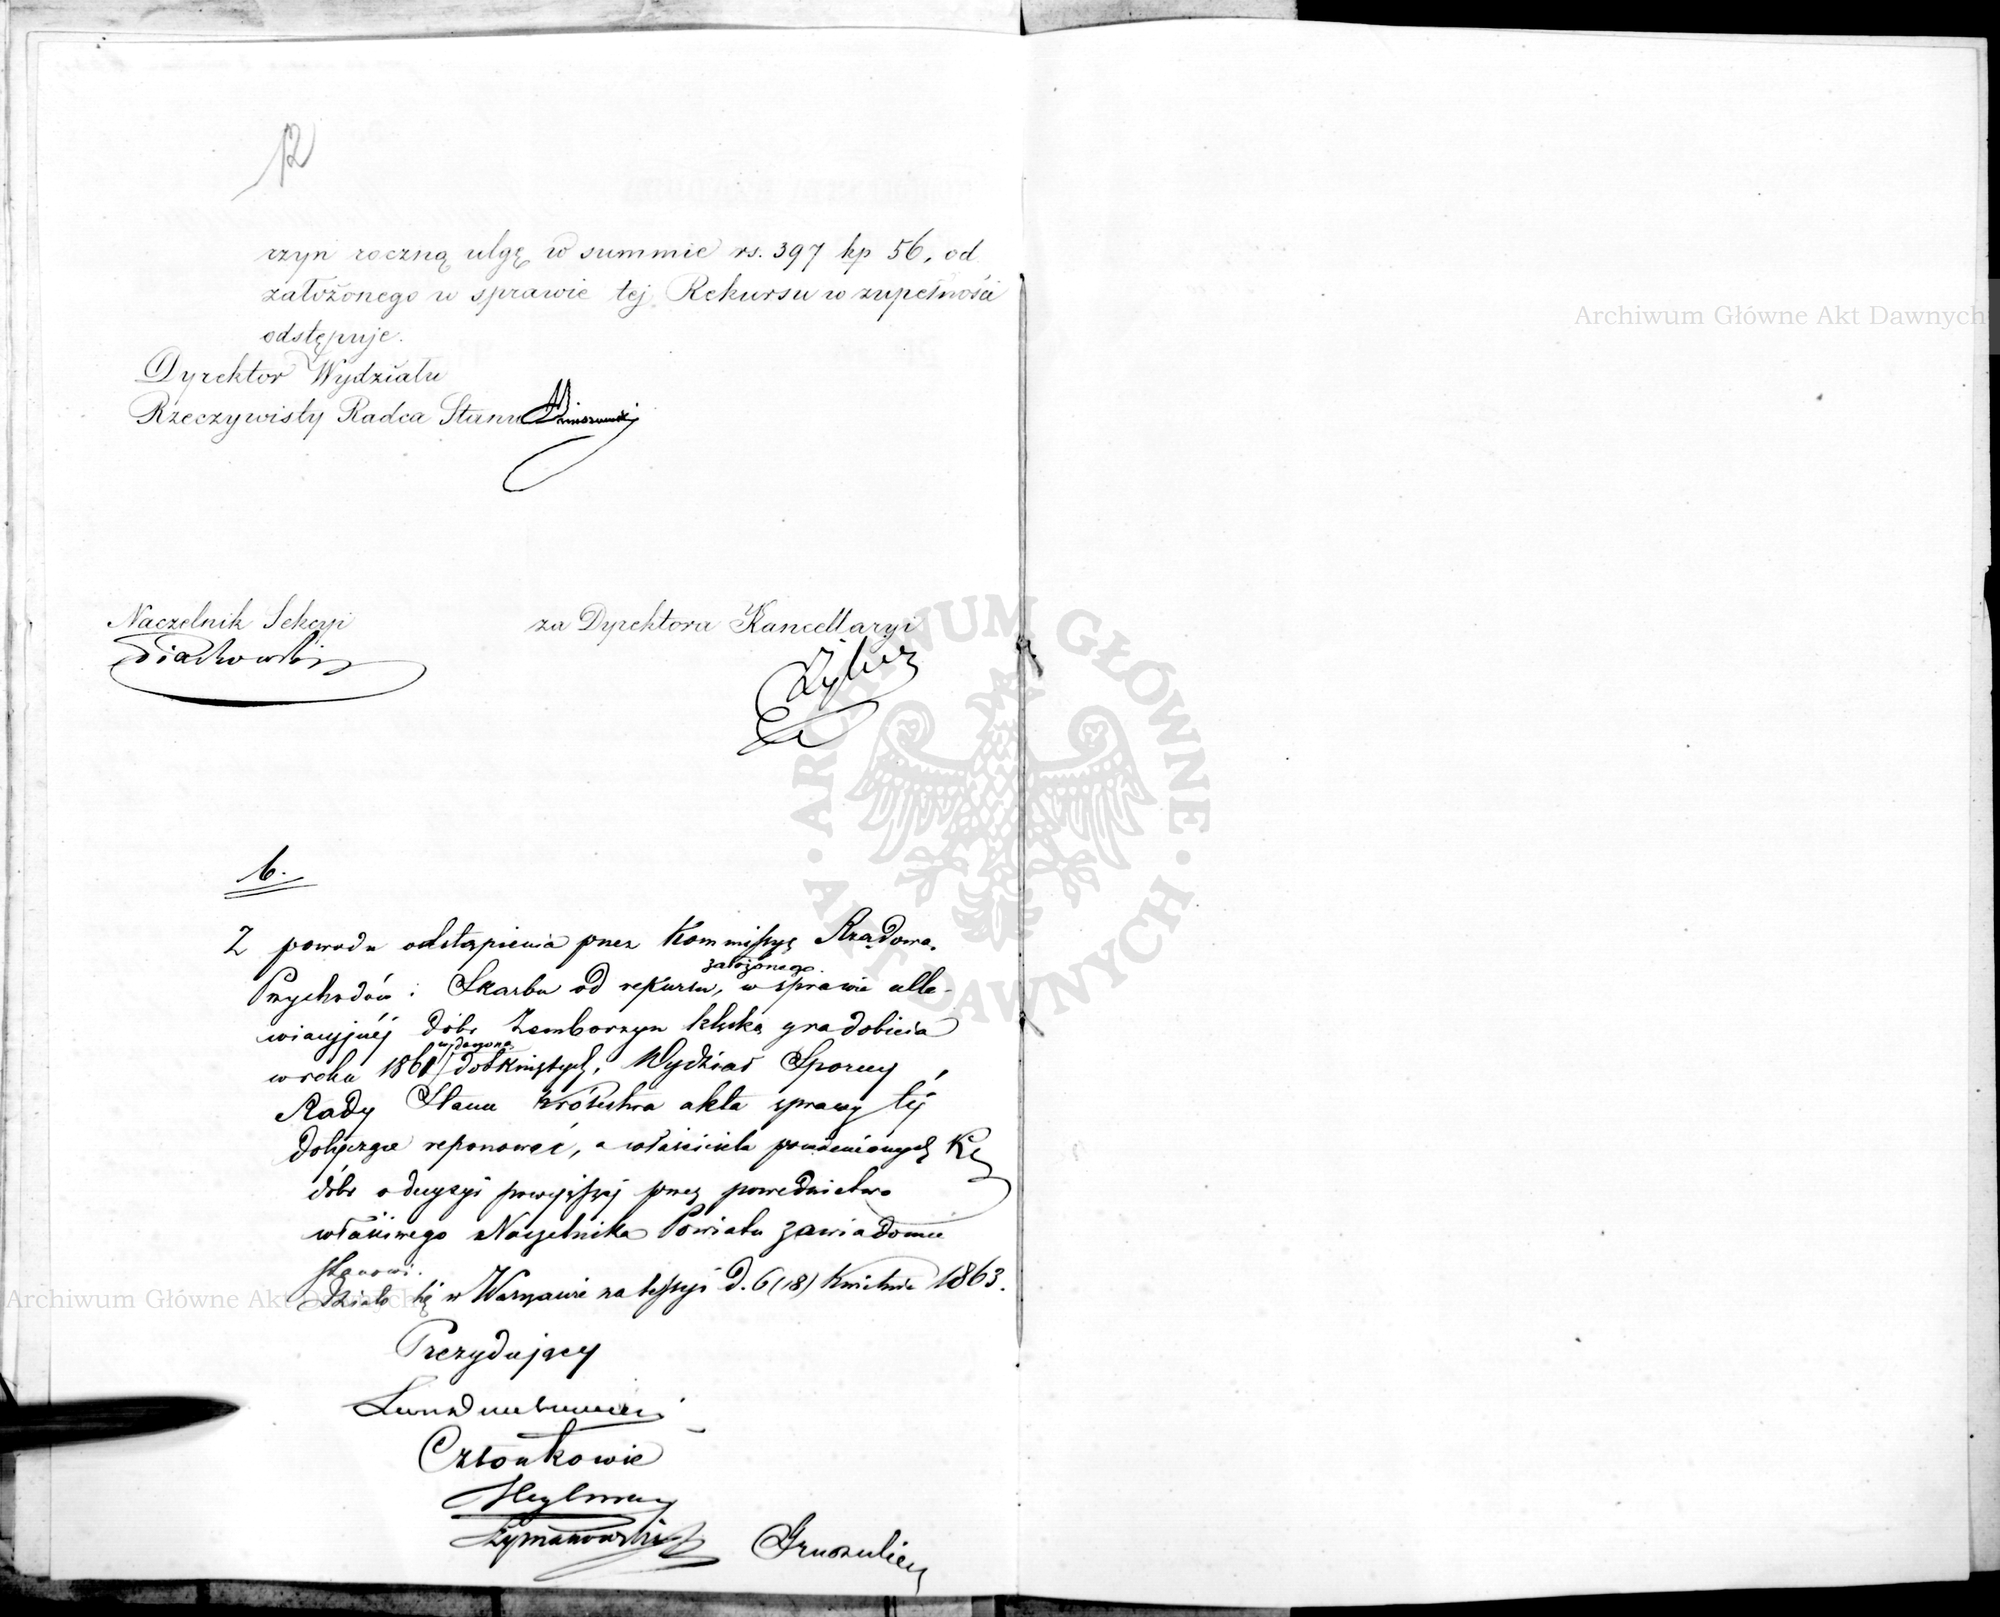 12
rzyn roczną ulgę w summie rs. 397 kp 56, od
założonego w sprawie tej Rekursu w zupełności
odstępuje.
Dyrektor Wydziału
Rzeczywisty Radca Stanu
Naczelnik Sekcyi
za Dyrektora Kancellaryi
6.
Z powodu odstąpienia przez Kommissyę Rządową
Przychodów i Skarbu od rekursu, założonego w sprawie alle-
wiacyjnéj dóbr Zemborzyn klęską gradobicia
w roku 1861 dotkniętych, Wydział Sporny
Rady Stanu Królestwa akta sprawy téj
dotyczące reponować, a właściciela pomienionych
dóbr o decyzyi powyższéj przez pośrednictwo
właściwego Naczelnika Powiatu zawiadomić
stanowi.
Działo się w Warszawie na sessyi d. 6 (18) Kwietnia 1863.
Prezydujący
Członkowie
Heylman
Szymanowski
Archiwum Główne Akt Dawnych
Archiwum Główne Akt Dawnych
ARCHIWUM GŁÓWNE AKT DAWNYCH